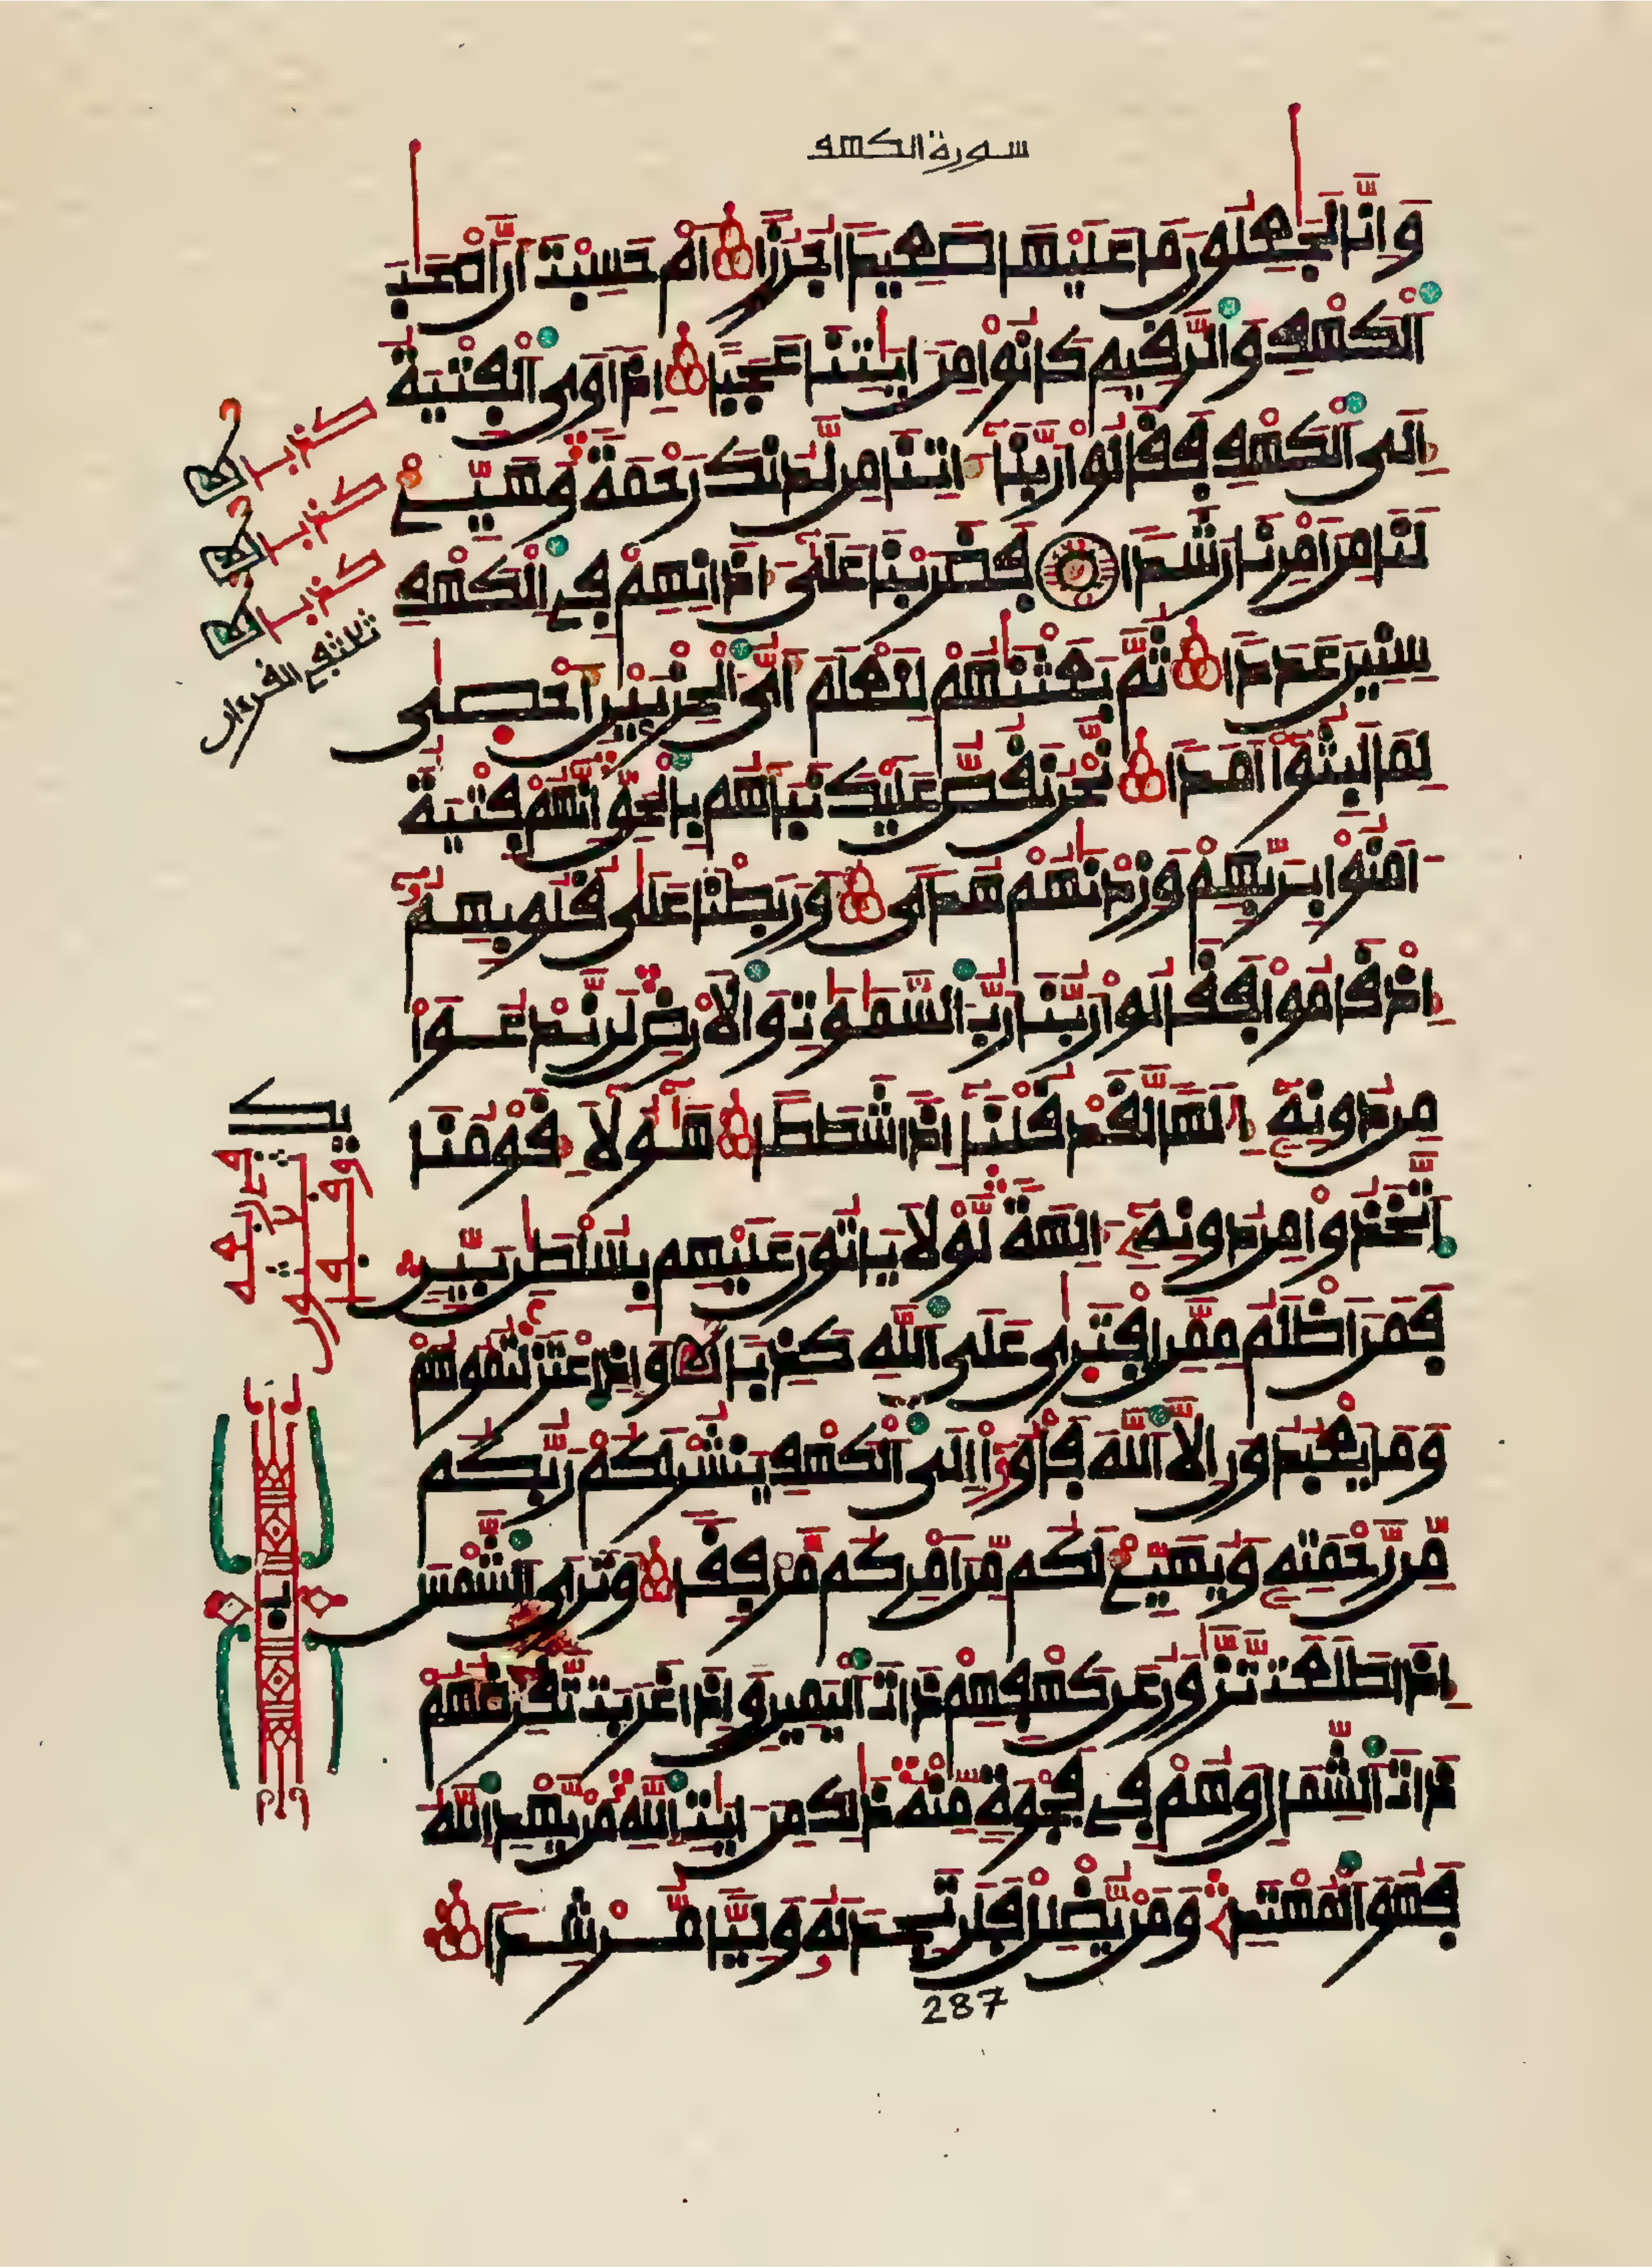 سورة الكهف
وَإِنَّا لَجَٰعِلُونَ مَا عَلَيْهَا صَعِيدًا جُرُزًا أَمْ حَسِبْتَ أَنَّ أَصْحَٰبَ
اَ۬لْكَهْفِ وَالرَّقِيمِ كَانُواْ مِنْ ءَايَٰتِنَا عَجَبًا إِذَ اَوَى اَ۬لْفِتْيَةُ
إِلَى اَ۬لْكَهْفِ فَقَالُواْ رَبَّنَا ءَاتِنَا مِن لَّدُنكَ رَحْمَةً وَهَيِّئْ
لَنَا مِنَ اَمْرِنَا رَشَدًا فَضَرَبْنَا عَلَىٰ ءَاذَانِهِمْ فِي اِ۬لْكَهْفِ
سِنِينَ عَدَدًا ثُمَّ بَعَثْنَٰهُمْ لِنَعْلَمَ أَيُّ اُ۬لْحِزْبَيْنِ أَحْصَىٰ
لِمَا لَبِثُواْ أَمَدًا نَّحْنُ نَقُصُّ عَلَيْكَ نَبَأَهُم بِالْحَقِّ إِنَّهُمْ فِتْيَةٌ
ـامَنُواْ بِرَبِّهِمْ وَزِدْنَٰهُمْ هُدًى وَرَبَطْنَا عَلَىٰ قُلُوبِهِمُ
إِذْ قَامُواْ فَقَالُواْ رَبُّنَا رَبُّ اُ۬لسَّمَٰوَٰتِ وَالْأَرْضِ لَن نَّدْعُوَاْ
مِن دُونِهِ إِلَٰهًا لَّقَدْ قُلْنَا إِذًا شَطَطًا هَٰؤُلَآءِ قَوْمُنَا
اَ۪تَّخَذُواْ مِن دُونِهِ ءَالِهَةً لَّوْلَا يَاتُونَ عَلَيْهِم بِسُلْطَٰنٍ بَيِّنٍ
فَمَنَ اَظْلَمُ مِمَّنِ اِ۪فْتَرَىٰ عَلَى اَ۬للَّهِ كَذِبًا وَإِذِ اِ۪عْتَزَلْتُمُوهُمْ
وَمَا يَعْبُدُونَ إِلَّا اَ۬للَّهَ فَأْوُواْ إِلَى اَ۬لْكَهْفِ يَنشُرْ لَكُمْ رَبُّكُم
مِّن رَّحْمَتِهِ وَيُهَيِّئْ لَكُم مِّنَ اَمْرِكُم مَّرْفِقًا وَتَرَى اَ۬لشَّمْسَ
إِذَا طَلَعَت تَّزَّٰوَرُ عَن كَهْفِهِمْ ذَاتَ اَ۬لْيَمِينِ وَإِذَا غَرَبَت تَّقْرِضُهُمْ
ذَاتَ اَ۬لشِّمَالِ وَهُمْ فِي فَجْوَةٍ مِّنْهُ ذَٰلِكَ مِنَ ـايَٰتِ اِ۬للَّهِ مَنْ يَّهْدِ اِ۬للَّهُ
فَهُوَ اَ۬لْمُهْتَدِ وَمَنْ يُّضْلِلْ فَلَن تَجِدَ لَهُ وَلِيًّا مُّرْشِدًا
287
كذبا
كذبا
كذبا